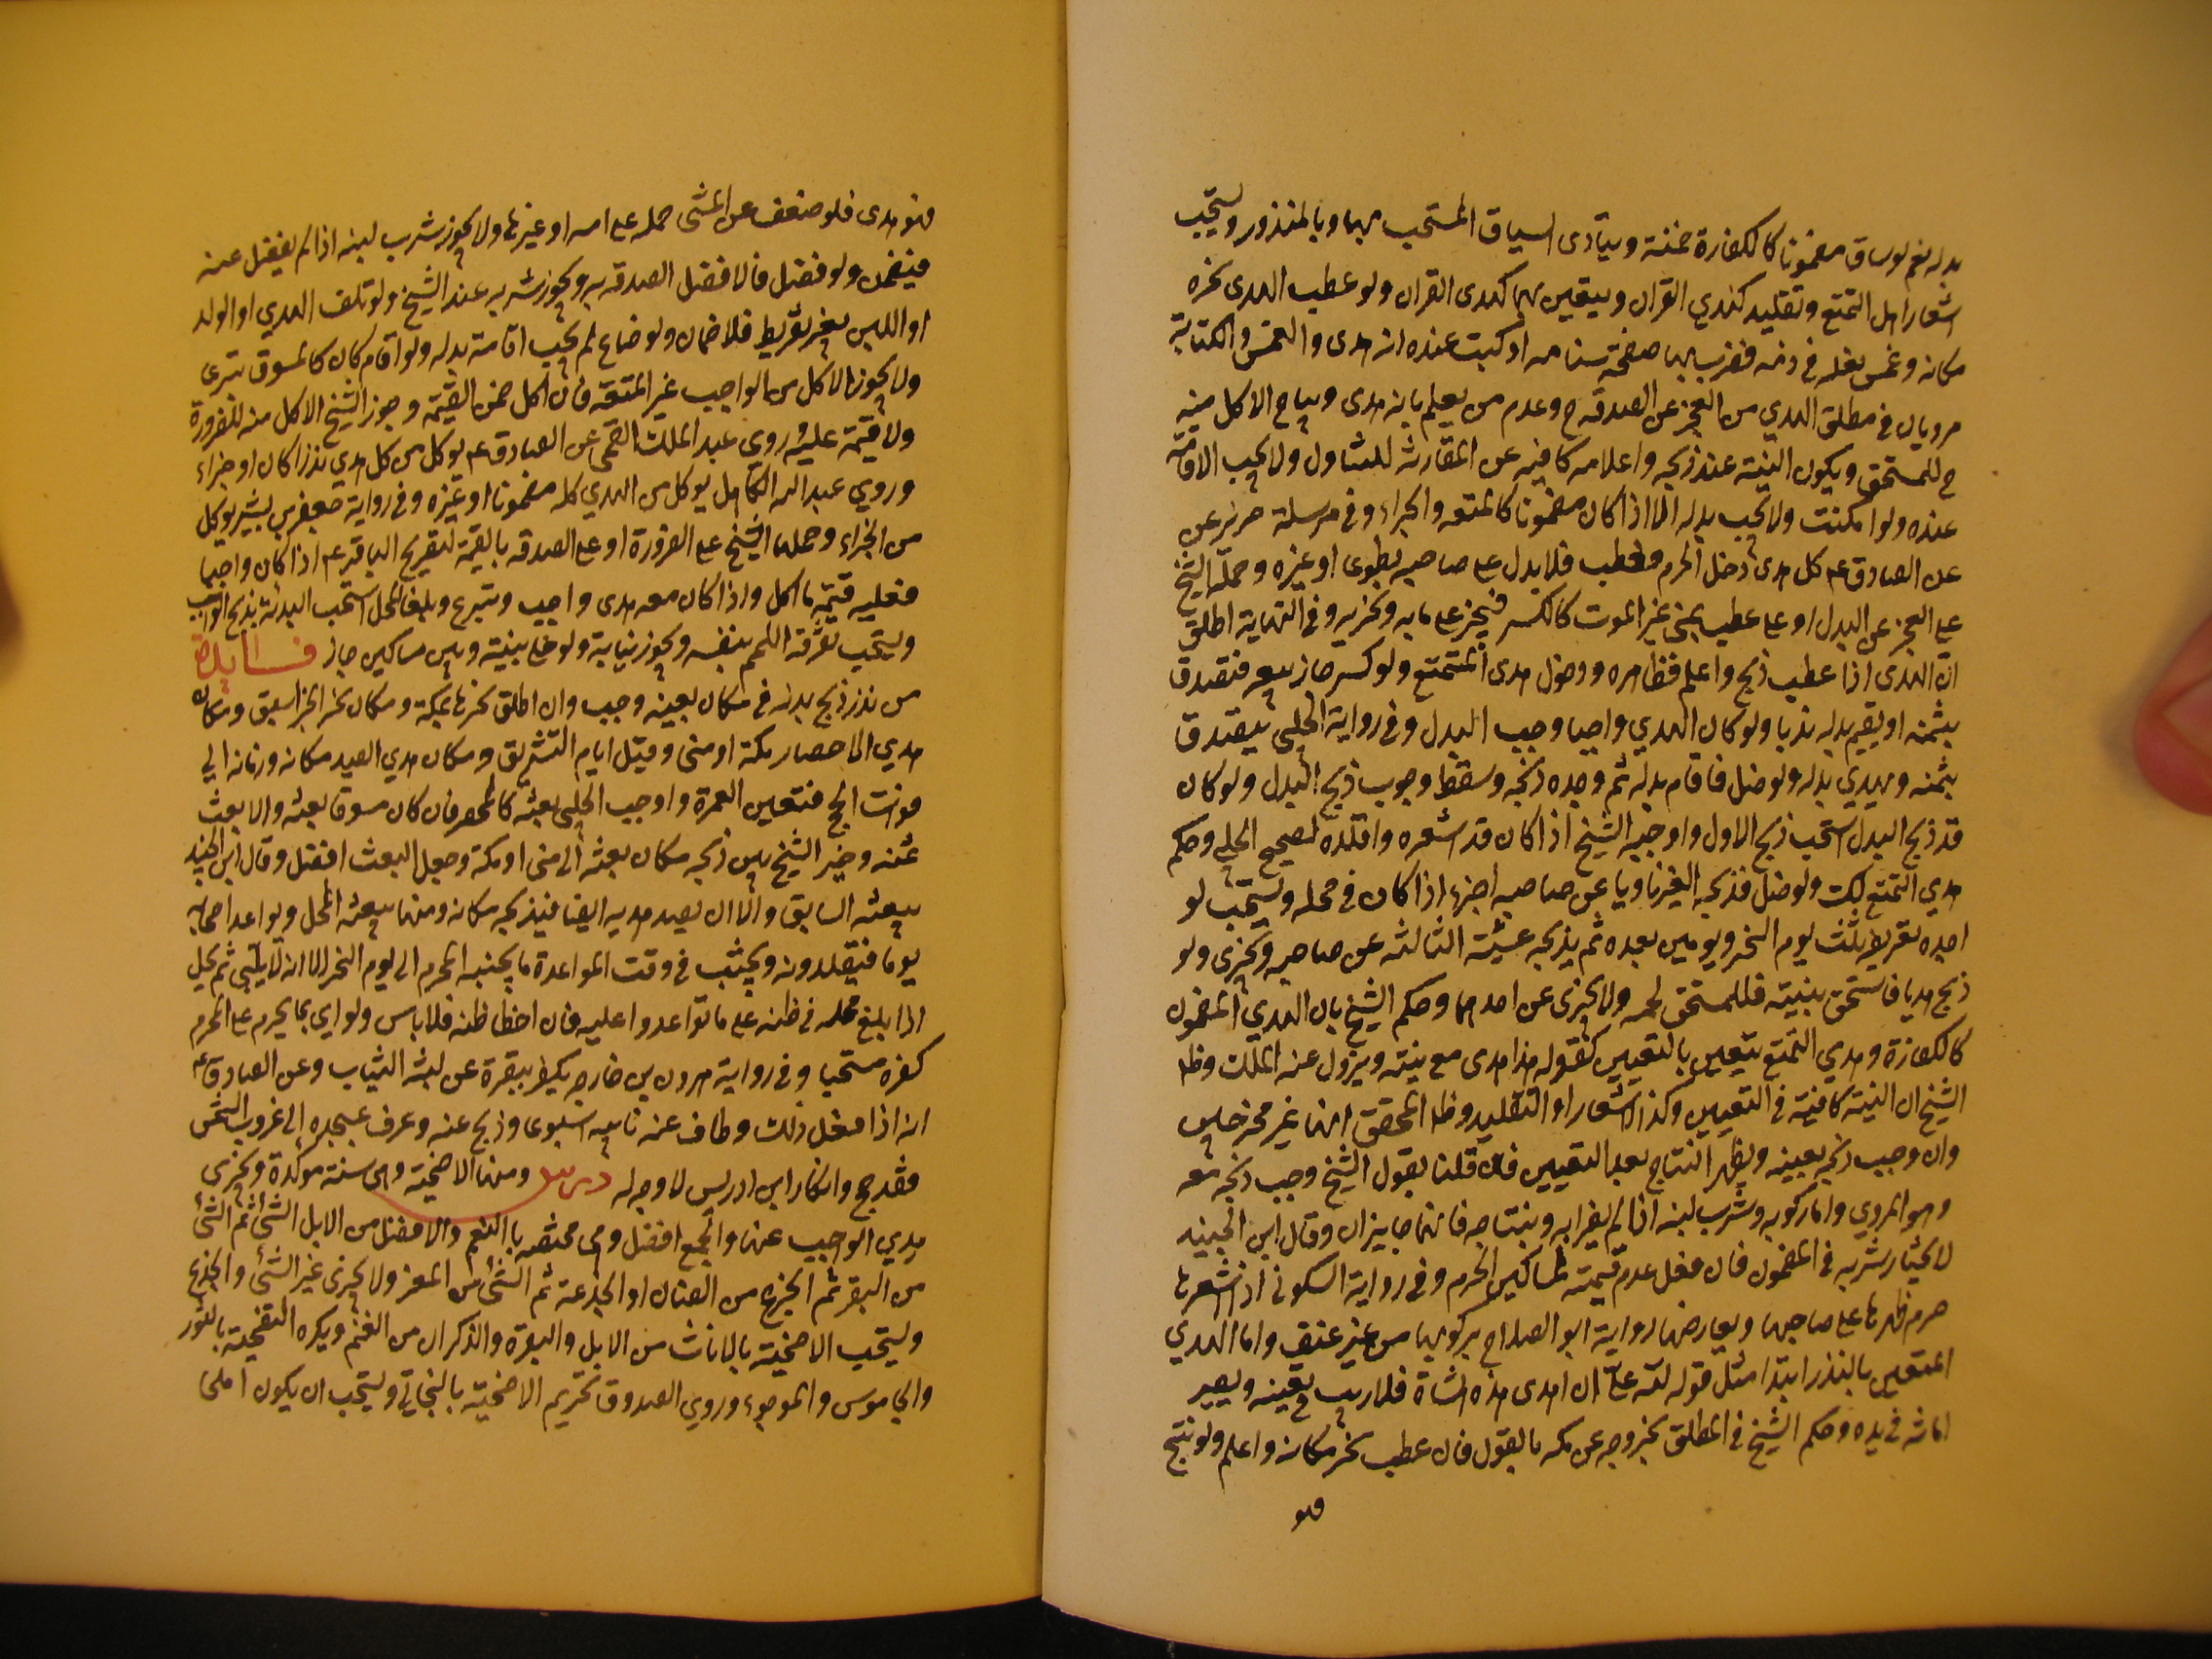 بدله نعم لو ساق مضمونا كالكفارة ضمنه ويتأدى السياق المستحب بهما وبالمنذور ويستحب
اشعار اهل التمتع وتقليده كهدي القران ويتعين بهما كهدى القران ولو عطب الهدى نحره
مكانه وغمس نعله في دمه فضرب بها صفحة سنامه او كتب عنده انه هدى والغمس والكتابة
مرويان في مطلق الهدي من العجز عن الصدقه ح وعدم من يعلم بانه هدى ويباح الاكل منه
ح للمستحق ويكون النية عند ذبحه واعلامه كافيه عن المقارنة للتناول ولا يجب الاقامة
عنده ولو امكنت ولا يجب بدله الا اذا كان مضمونا كالمتعه والجزاء وفي مرسلة حريز عن
عن الصادق عم كل هدى دخل الحرم فعطب فلا بدل على صاحبه تطوعا او غيره وحملها الشيخ
على العجز عن البدل او على عطب بمنى غير الموت كالكسر فينحر على ما به ويجزيه وفي النهاية اطلق
ان الهدى اذا عطب ذبح واعلم فظاهره دخول هدى المتمتع ولو كسر جاز بيعه فتصدق
بثمنه او يقيم بدله ندبا ولو كان الهدي واجبا وجب البدل وفي رواية الحلبى يتصدق
بثمنه ويهدي بدله ولو ضل فاقام بدله ثم وجده ذبحه وسقط وجوب ذبح البدل ولو كان
قد ذبح البدل استحب ذبح الاول واوجبه الشيخ اذا كان قد اشعره او قلده لصحيح الحلبي وحكم
هدي التمتع كك ولو ضل فذبحه الغير ناويا عن صاحبه اجزا اذا كان في محله ويستحب لو
اجده تعريفه ثلث يوم النحر ويومين بعده ثم يذبحه عشية الثالثة عن صاحبه ويجزى ولو
ذبح هديا فاستحق بنيته فللمستحق لحمه ولا يجزى عن احدهما وحكم الشيخ بان الهدي المضمون
كالكفارة وهدي التمتع يتعين بالتعيين كقوله هذا هدى مع نيته ويزول عنه الملك وظاهر
الشيخ ان النية كافية في التعيين وكذا الاشعار او التقليد وظاهر المحقق انهما غير مخرجين
وان وجب ذبحه بعينه ويظهر النتاج بعد التعيين فان قلنا بقول الشيخ وجب ذبحه معه
وهو المروي واما ركوبه وشرب لبنه اذا لم يضر به وبنتاجه فانهما جايزان وقال ابن الجنيد
لا يختار شربه في المضمون فان فعل غرم قيمته لمساكين الحرم وفي رواية السكونى اذا اشعرها
حرم ظهرها على صاحبها ويعارضها رواية ابو الصلاح بركوبها من غير عنف واما الهدي
المتعين بالنذر ابتدا مثل قوله لله علي ان اهدى هذه الشاة فلا ريب تعينه ويصير
امانة في يده وحكم الشيخ في المطلق بخروجه عن ملكه بالقول فان عطب نحر مكانه واعلم ولو نتج
فهو
فهو هدى فلو ضعف عن المشى حمله على امه او غيرها ولا يجوز شرب لبنه اذا لم يفضل عنه
فيضمن ولو فضل فالافضل الصدقه به ويجوز شربه عند الشيخ ولو تلف الهدي او الولد
او اللبن بغير تفريط فلا ضمان ولو ضاع لم يجب اقامة بدله ولو اقام كان كالمسوق تبرعا
ولا يجوز الاكل من الواجب غير المتعه فان اكل ضمن القيمة وجوز الشيخ الاكل منه للضرورة
ولا قيمة عليه وروى عبد الملك القمى عن الصادق عم يوكل من كل هدي نذرا كان او جزاء
وروى عبد الله الكاهل يوكل من الهدي كله مضمونا او غيره وفي رواية جعفر بن بشير يوكل
من الجزاء وحملها الشيخ على الضرورة او على الصدقه بالقيمة لتصريح الباقر عم اذا كان واجبا
فعليه قيمة ما اكل واذا كان معه هدى واجب وتبرع وبلغا المحل استحب البداة بذبح الواجب
ويستحب تفرقة اللحم بنفسه ويجوز نيابة ولو خلى بينه وبين مساكين جاز فائدة
من نذر ذبح بدنه في مكان بعينه وجب وان اطلق نحرها بمكة ومكان نحر الجزا سبق ومكان
هدي الاحصار مكة او منى وقيل ايام التشريق ومكان هدي الصد مكانه وزمانه الي
فوات الحج فتتعين العمرة واوجب الحلبي بعثه كالحصر فان كان مسوقا بعثه والا بعث
ثمنه وخير الشيخ بين ذبحه مكان بعثه الى منى او مكة وجعل البعث افضل وقال ابن الجنيد
يبعثه السايق والا ان يصد هديه ايضا فيذبحه مكانه ومنها يبعثه المحل ويواعد اصحابه
يوما فيقلدونه ويجتنب في وقت المواعدة ما يجتنبه المحرم الى يوم النحر الا انه لا يلبي ثم يحل
اذا بلغ محله في ظنه على ما تواعدوا عليه فان اخطا ظنه فلا باس ولو اتي بما يحرم على المحرم
كفر مستحبا وفي رواية هرون بن خارجه يكفر ببقرة عن لبس الثياب وعن الصادق عم
انه اذا فعل ذلك وطاف عنه نايبه اسبوعا وذبح عنه وعرف بمسجده الى غروب الشمس
فقد حج وانكار ابن ادريس لا وجه له درس ومنها الاضحية وهى سنة موكدة ويجزى
هدي الواجب عنها والجمع افضل وهى مختصه بالنعم والافضل من الابل الثني ثم الثني
من البقر ثم الجذع من الضان او الجذعة ثم الثني من المعز ولا يجزى غير الثني والجذع
ويستحب الاضحية بالاناث من الابل والبقرة والذكران من الغنم ويكره التضحية بالثور
والجاموس والموجوء وروي الصدوق تحريم الاضحية بالبخاتي ويستحب ان يكون املحا